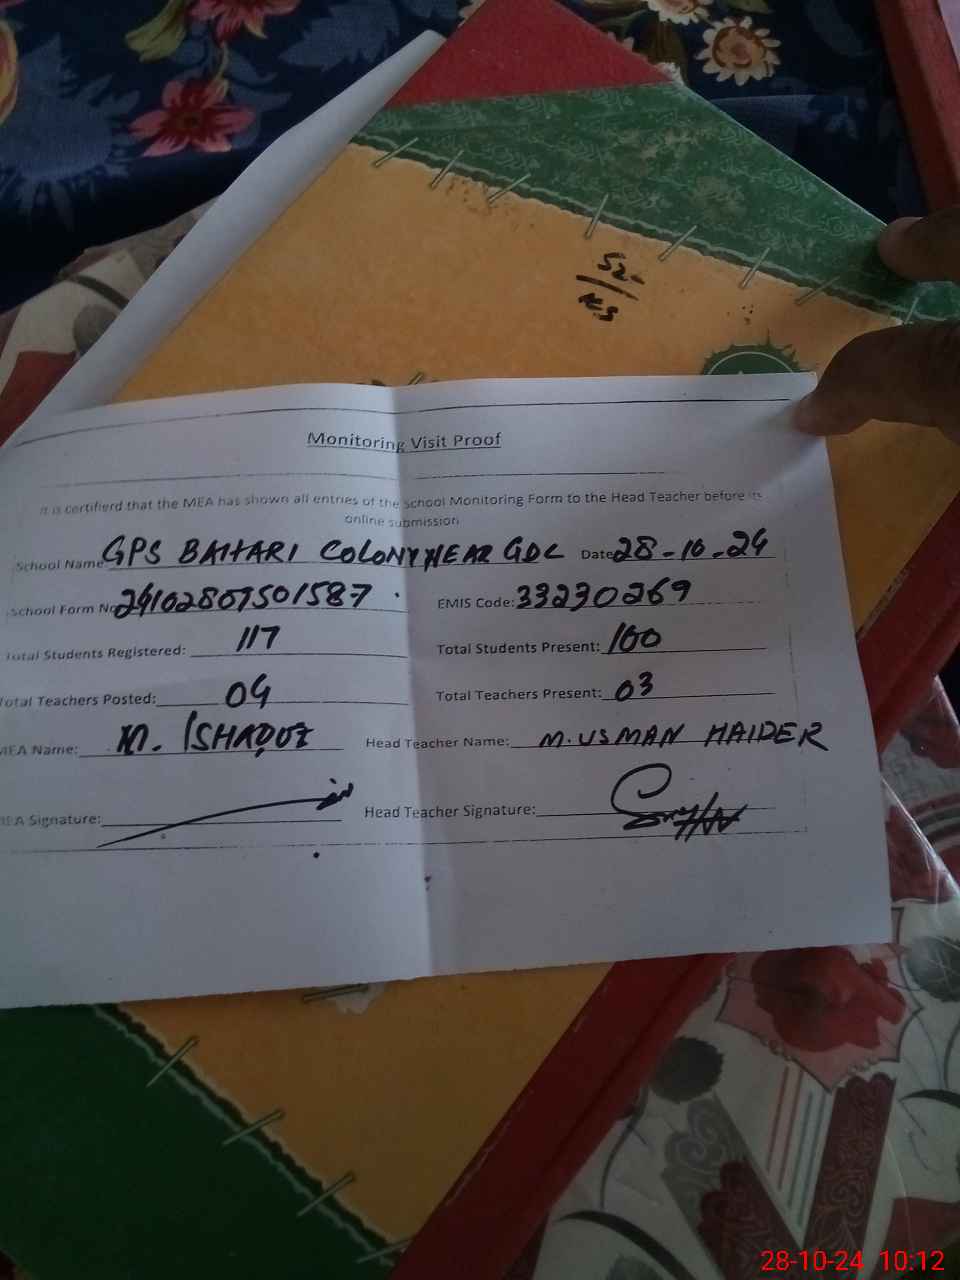 52-
Monitoring Visit Proof
It is certifierd that the MEA has shown all entries of the School Monitoring Form to the Head Teacher before its
online submission
School Name GPS BAHARI COLONY NEAR GDC Date 28-10-24
School Form No 241028091501587 EMIS Code: 33230269
Total Students Registered: 117 Total Students Present: 100
Total Teachers Posted: 04 Total Teachers Present: 03
MEA Name: M. ISHAQUE Head Teacher Name: M. USMAN HAIDER
MEA Signature: Head Teacher Signature:
28-10-24 10:12